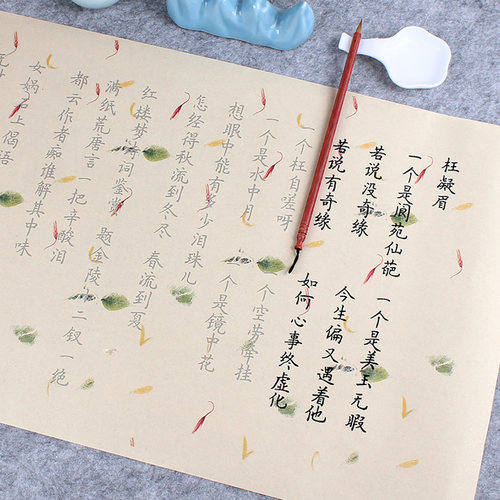 枉凝眉
一个是阆苑仙葩 一个是美玉无瑕
若说没奇缘 今生偏又遇着他
若说有奇缘 如何心事终虚化
一个枉自嗟呀 个空劳牵挂
一个是水中月 个是镜中花
想眼中能有多少泪珠儿
怎经得秋流到冬尽 春流到夏
红楼梦诗词鉴赏 题金陵 二钗一绝
满纸荒唐言 一把辛酸泪
都云作者痴 谁解其中味
女娲石上偈语